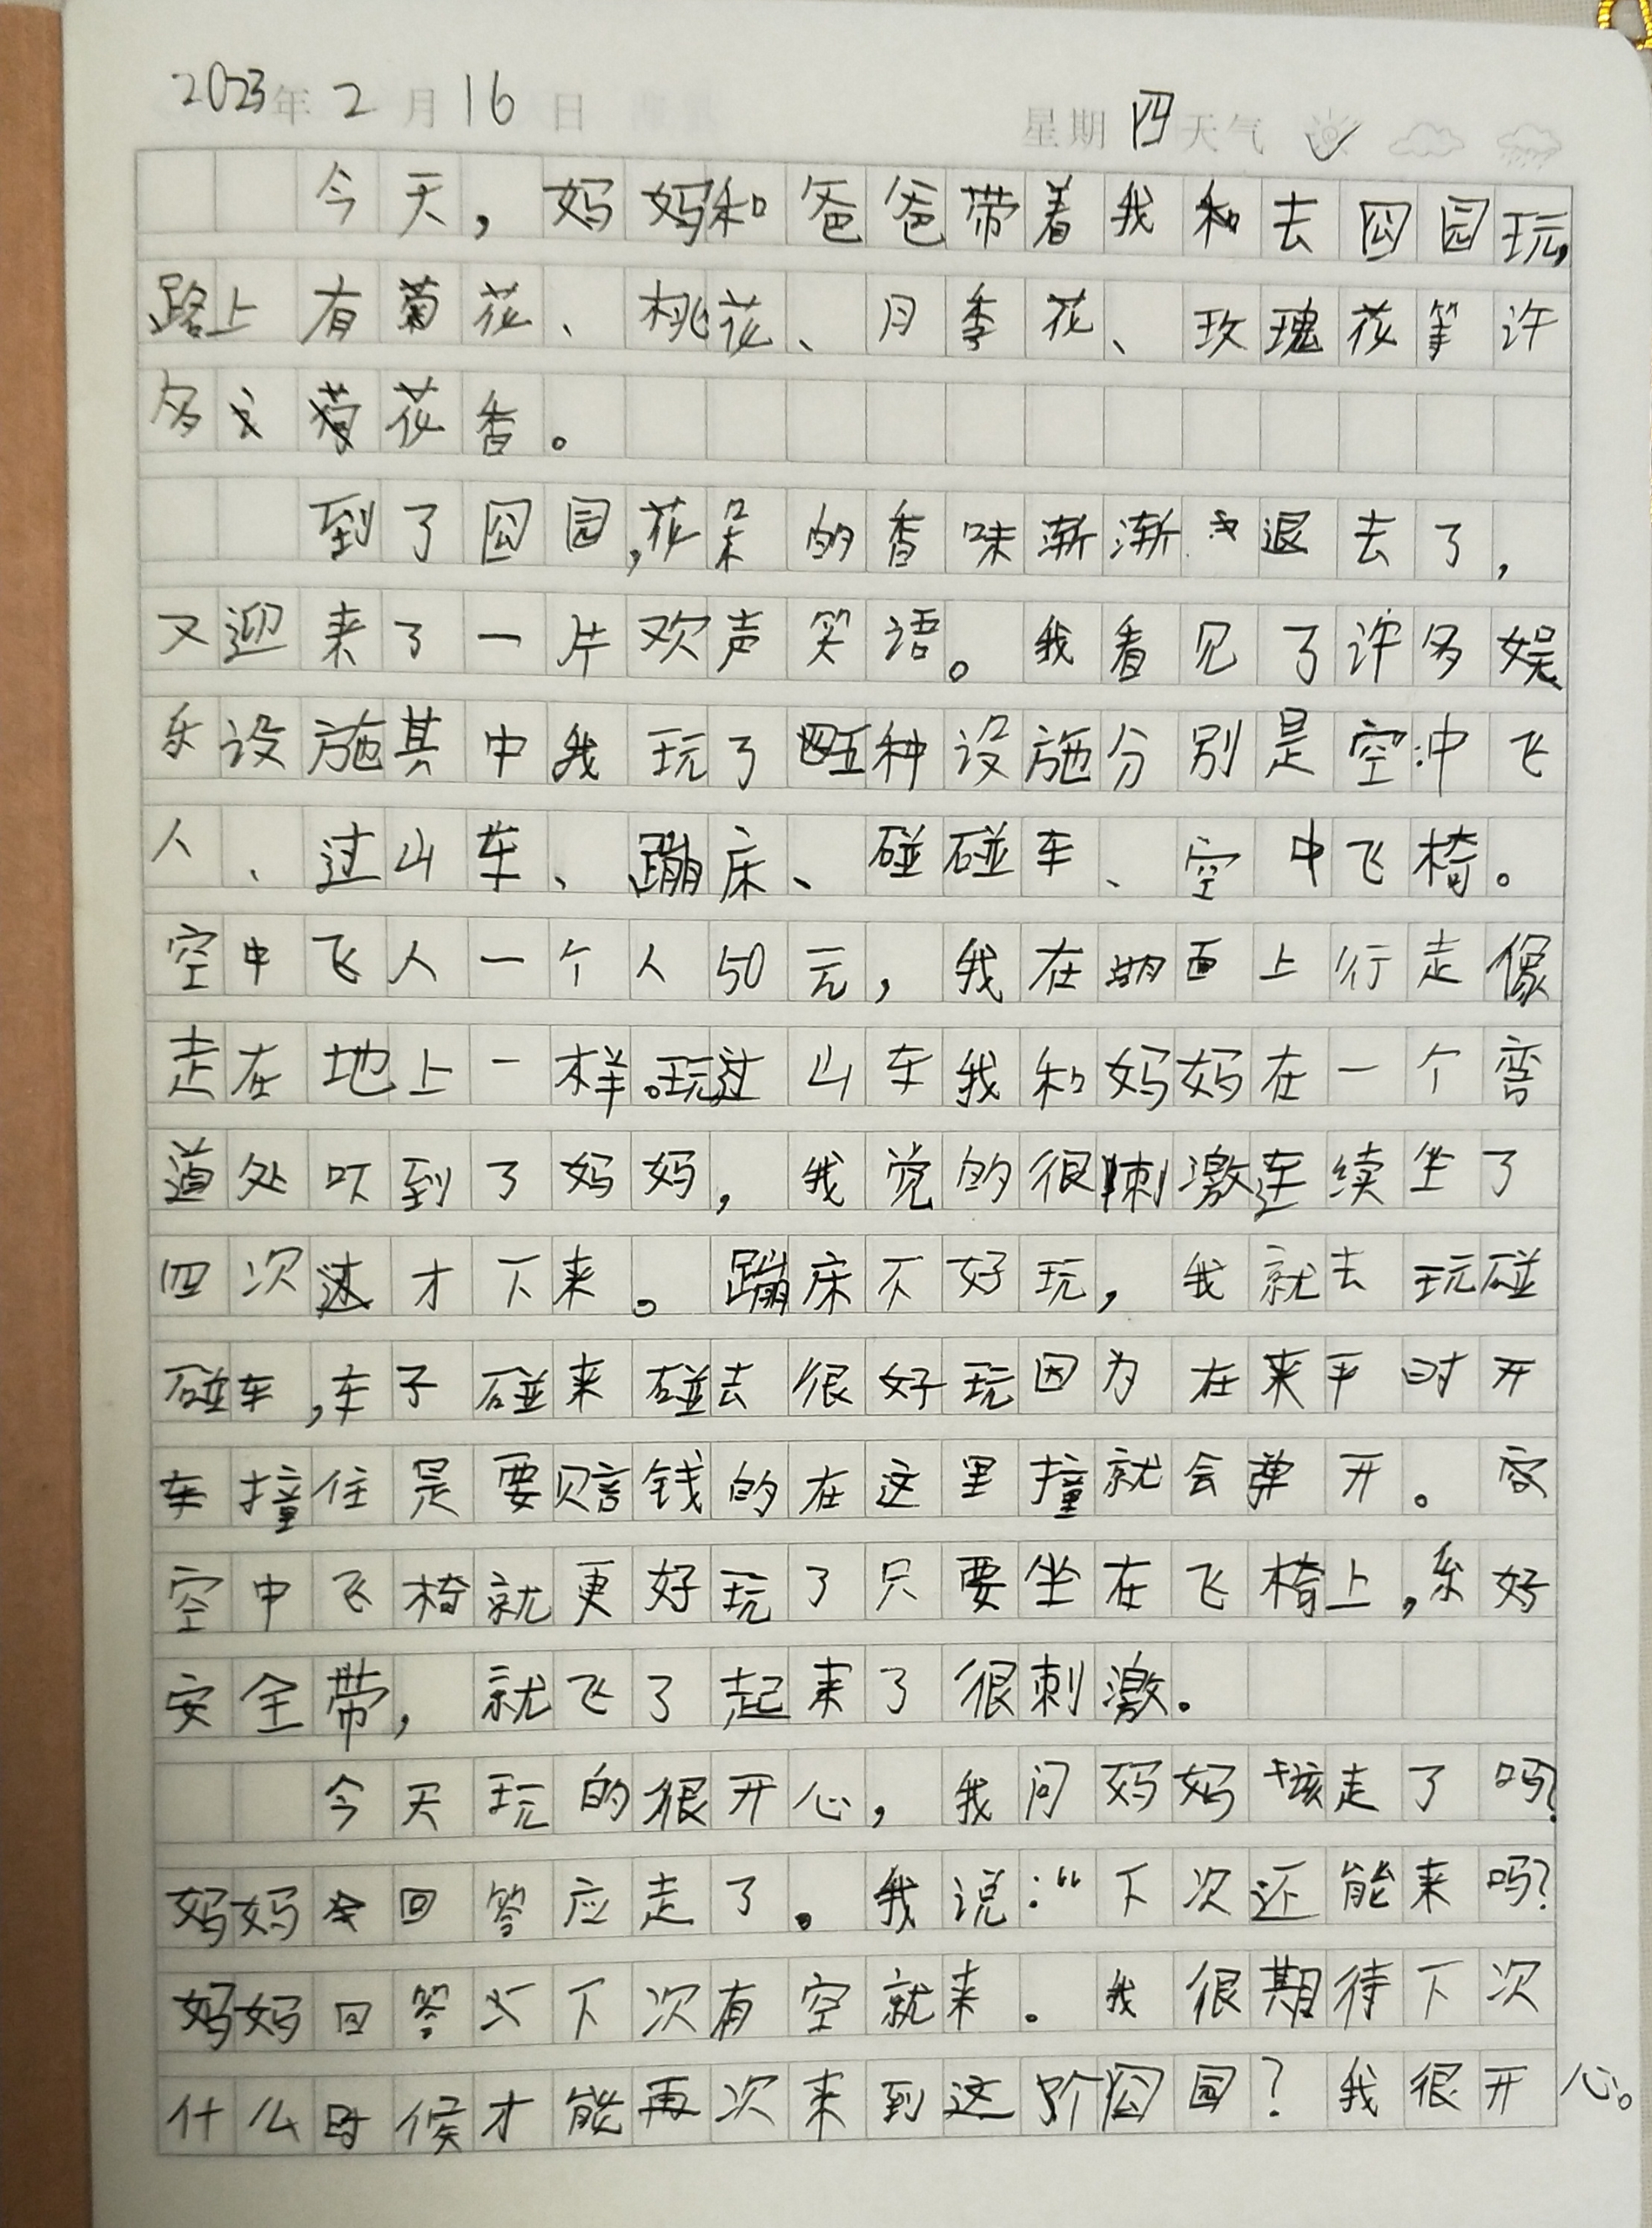 2023年2月16日 星期四天气
今天，妈妈和爸爸带着我和去囧园玩，
路上有菊花、桃花、月季花、玫瑰花等许
多花香。
到了囧园，花朵的香味渐渐退去了，
又迎来了一片欢声笑语。我看见了许多娱
乐设施其中我玩了五种设施分别是空冲飞
人、过山车、蹦床、碰碰车、空中飞椅。
空中飞人一个人50元，我在湖面上行走像
走在地上一样。玩过山车我和妈妈在一个弯
道处吓到了妈妈，我觉的很刺激连续坐了
四次这才下来。蹦床不好玩，我就去玩碰
碰车，车子碰来碰去很好玩因为在来平时开
车撞住是要赔钱的在这里撞就会弹开。
空中飞椅就更好玩了只要坐在飞椅上，系好
安全带，就飞了起来了很刺激。
今天玩的很开心，我问妈妈该走了吗？
妈妈回答应走了。我说：“下次还能来吗？
妈妈回答下次有空就来。我很期待下次
什么时候才能再次来到这个囧园？我很开心。